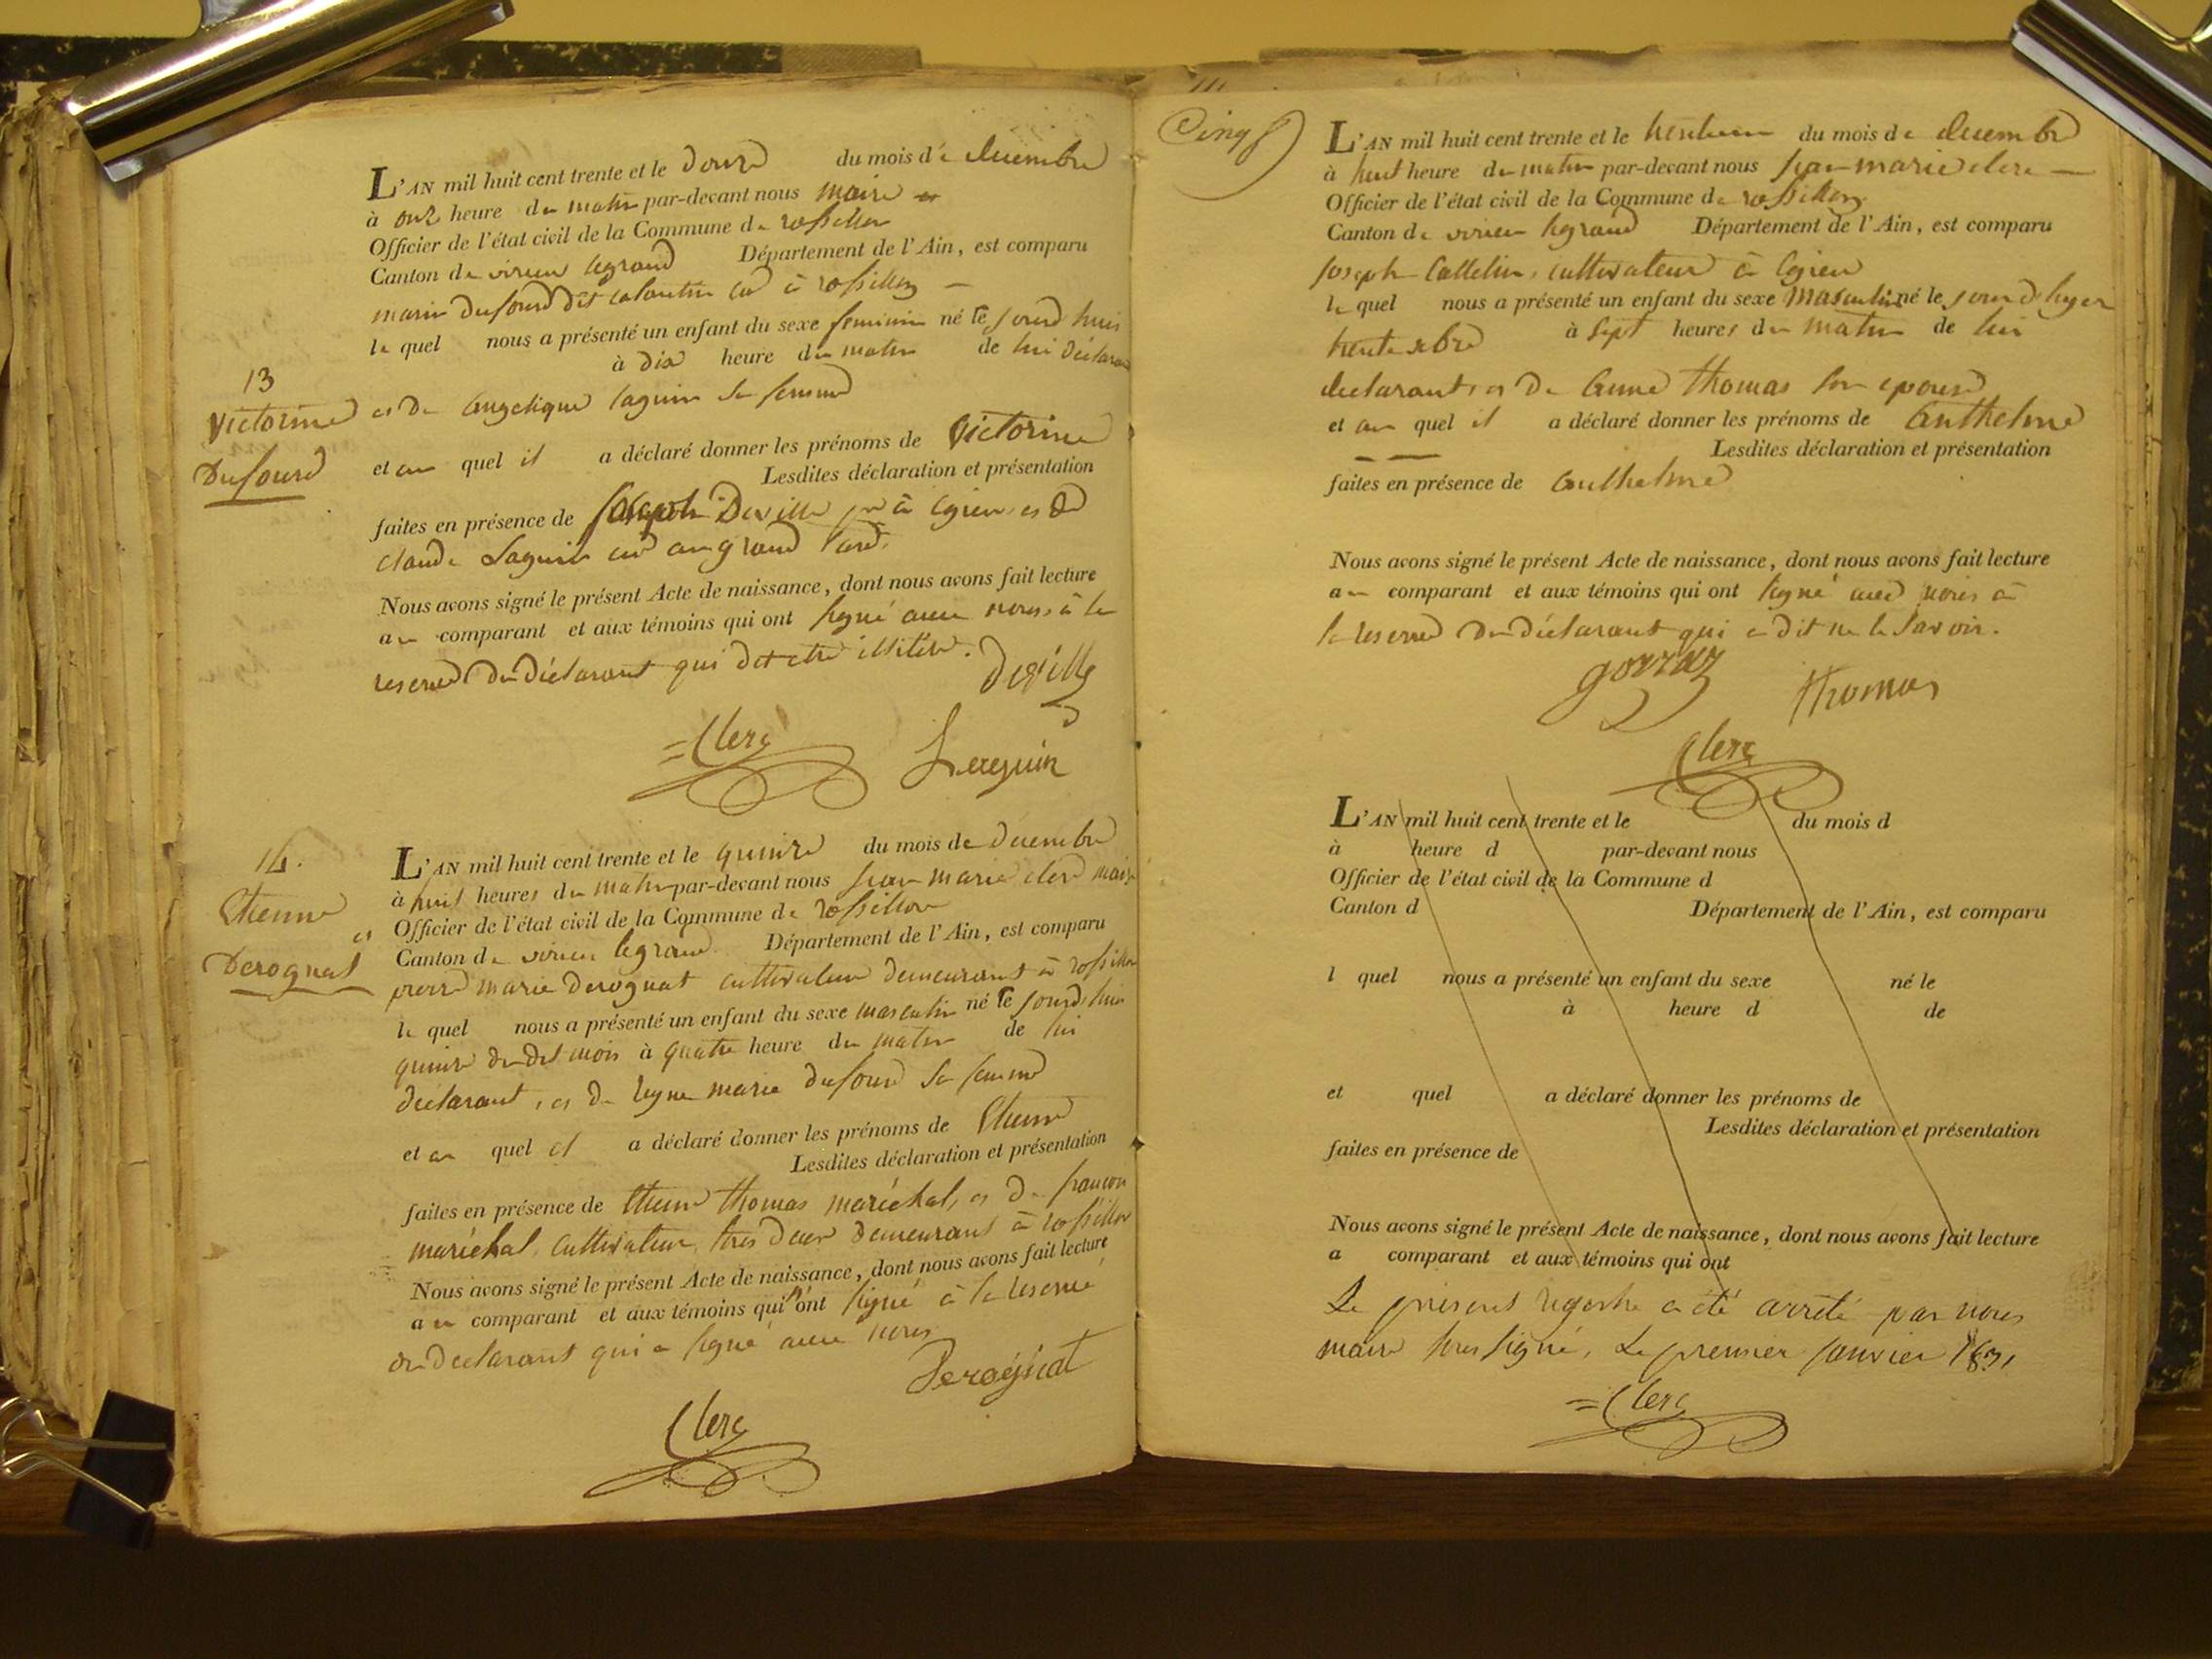 L'AN mil huit cent trente et le douze du mois de decembre
à onze heure du matin par-devant nous maire
Officier de l'état civil de la Commune de rossillon
Canton de virieu legrand Département de l'Ain, est comparu
marin Dufourd dit à rossillon
le quel nous a présenté un enfant du sexe feminin né le jourd'hui
à dix heure du matin de lui déclarant
13
Victorine
Dufourd
et de angelique laguin sa femme
et au quel il a déclaré donner les prénoms de Victorine
Lesdites déclaration et présentation
faites en présence de Joseph Deville à et de
claude Laguin au grand
Nous avons signé le présent Acte de naissance, dont nous avons fait lecture
au comparant et aux témoins qui ont signé avec nous à la
reserve du déclarant qui dit etre illitéré.
Deville
Clerc
Leaguin
14.
Etienne
Derognat
L'AN mil huit cent trente et le quinze du mois de decembre
à huit heures du matin par-devant nous jean marie clerc maire
Officier de l'état civil de la Commune de rossillon
Canton de virieu legrand Département de l'Ain, est comparu
pierre marie Derognat cultivateur demeurant à rossillon
le quel nous a présenté un enfant du sexe masculin né le jourd'hui
quinze du dit mois à quatre heure du matin de lui
déclarant, et de marie dufourd sa femme
et au quel il a déclaré donner les prénoms de Etienne
Lesdites déclaration et présentation
faites en présence de Etienne thomas maréchal, et de francois
maréchal, cultivateur, tous deux demeurant à rossillon
Nous avons signé le présent Acte de naissance, dont nous avons fait lecture
au comparant et aux témoins qui n'ont signé à la reserve
du declarant qui a signé avec nous
Derognat
Clerc
Cinq
L'AN mil huit cent trente et le trenteun du mois de decembre
à huit heure du matin par-devant nous jean marie clerc
Officier de l'état civil de la Commune de rossillon
Canton de virieu legrand Département de l'Ain, est comparu
joseph cultivateur à
le quel nous a présenté un enfant du sexe masculin né le jourd'hyer
trente xbre à sept heures du matin de lui
declarant, et de anne thomas son epouse
et au quel il a déclaré donner les prénoms de anthelme
Lesdites déclaration et présentation
faites en présence de anthelme
Nous avons signé le présent Acte de naissance, dont nous avons fait lecture
au comparant et aux témoins qui ont signé avec nous à
la reserve du déclarant qui a dit ne le savoir.
thomas
Clerc
L'AN mil huit cent trente et le du mois d
à heure d par-devant nous
Officier de l'état civil de la Commune d
Canton d Département de l'Ain, est comparu
l quel nous a présenté un enfant du sexe né le
à heure d de
et quel a déclaré donner les prénoms de
Lesdites déclaration et présentation
faites en présence de
Nous avons signé le présent Acte de naissance, dont nous avons fait lecture
a comparant et aux témoins qui ont
Le présent registre a été arrêté par nous
maire sous signé, Le premier janvier 1831
Clerc